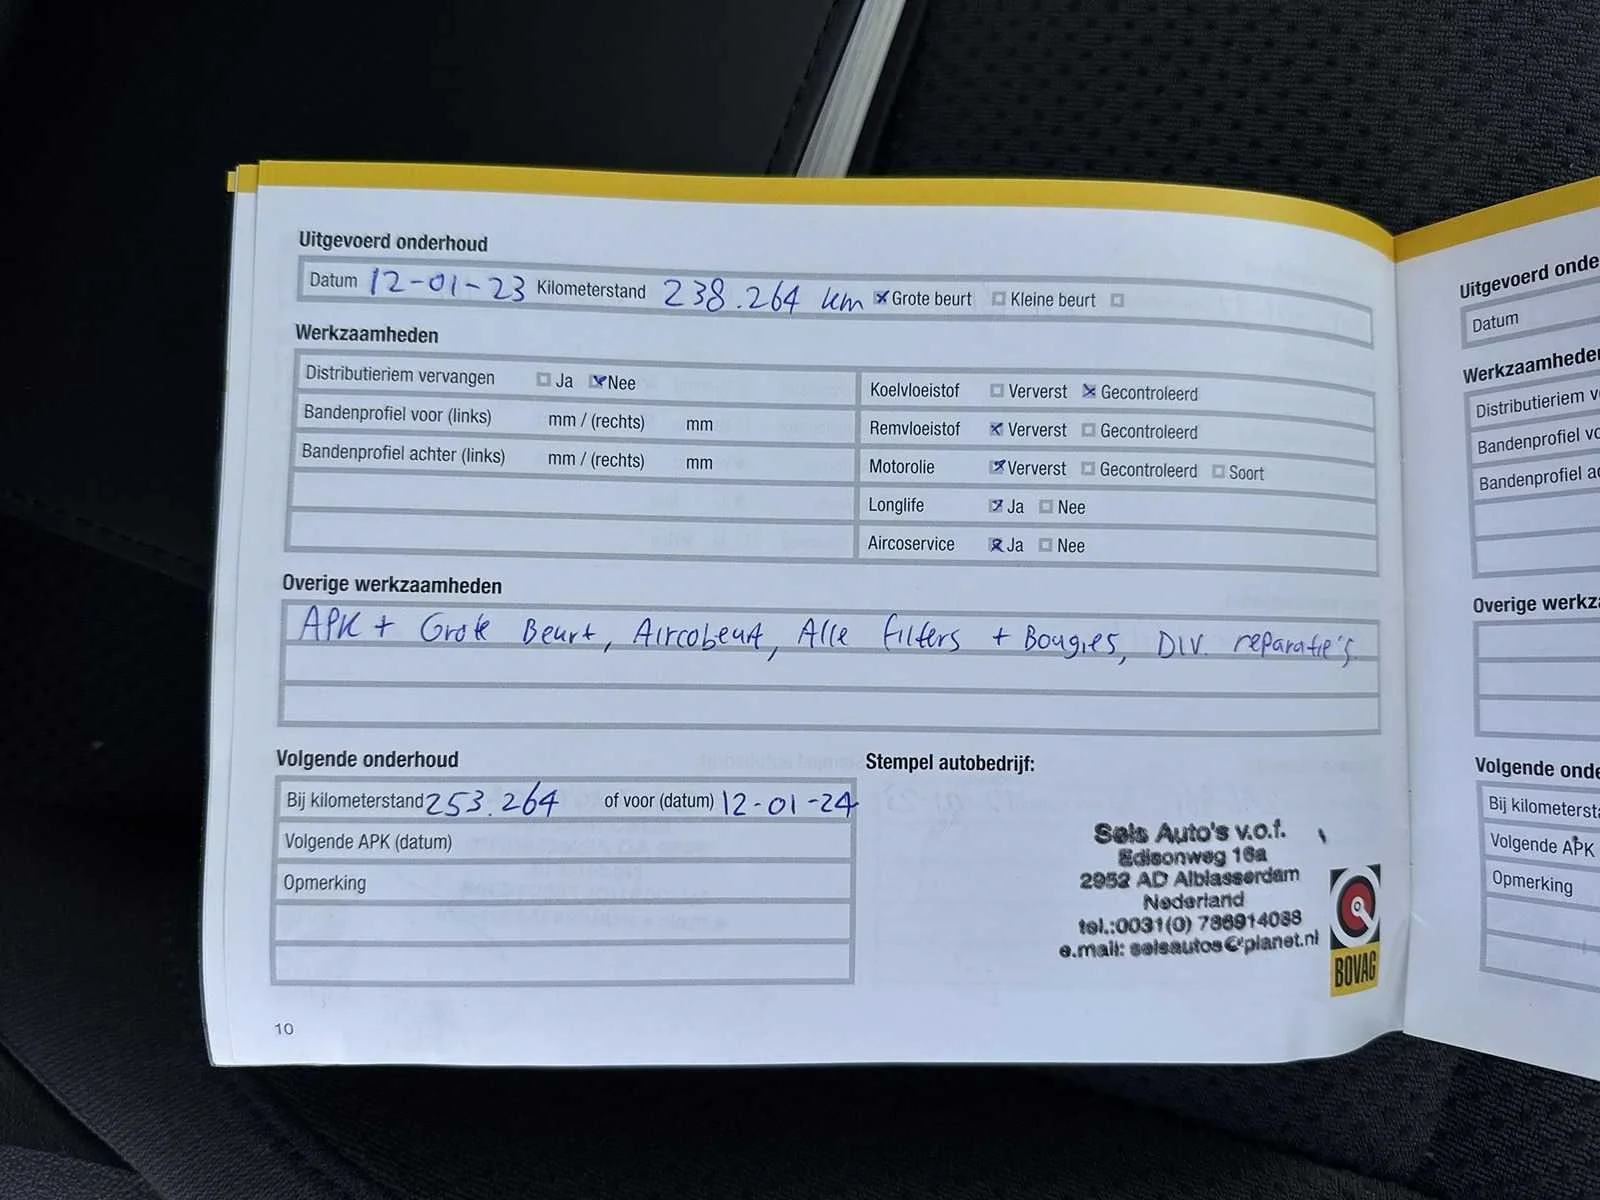 Uitgevoerd onderhoud
Datum 12-01-23 Kilometerstand 238.264 km Grote beurt Kleine beurt
Werkzaamheden
Distributieriem vervangen Ja Nee
Bandenprofiel voor (links) mm / (rechts) mm
Bandenprofiel achter (links) mm / (rechts) mm
Koelvloeistof Ververst Gecontroleerd
Remvloeistof Ververst Gecontroleerd
Motorolie Ververst Gecontroleerd Soort
Longlife Ja Nee
Aircoservice Ja Nee
Overige werkzaamheden
APK + Grote Beurt, Aircobeurt, Alle filters + Bougies, Div. reparatie's
Volgende onderhoud
Bij kilometerstand 253.264 of voor (datum) 12-01-24
Volgende APK (datum)
Opmerking
Stempel autobedrijf:
Sels Auto's v.o.f.
Edisonweg 16a
2952 AD Alblasserdam
Nederland
tel.:0031(0) 786914088
e.mail: selsautos@planet.nl
BOVAG
10
Uitgevoerd onde
Datum
Werkzaamhede
Distributieriem v
Bandenprofiel vo
Bandenprofiel ac
Overige werkza
Volgende onde
Bij kilometersta
Volgende APK
Opmerking